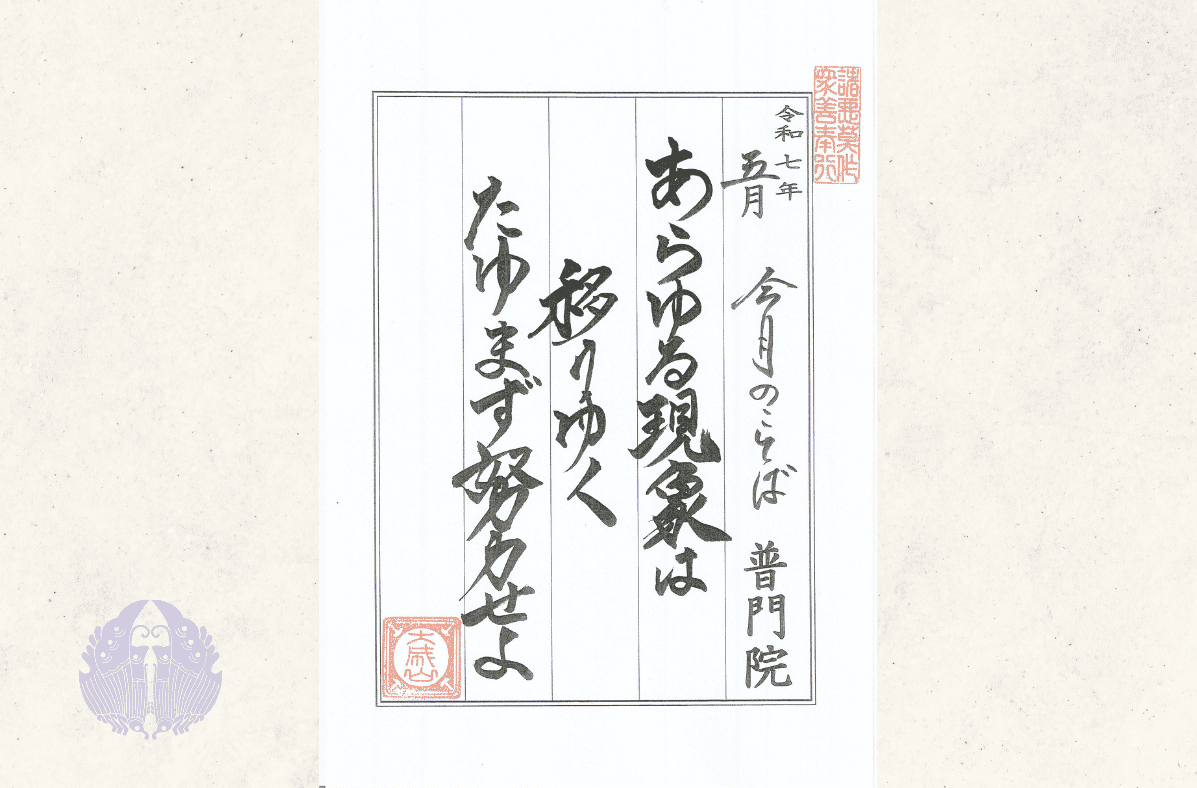 諸悪莫作
衆善奉行
令和七年
五月
今月のことば 普門院
あらゆる現象は
移りゆく
たゆまず努力せよ